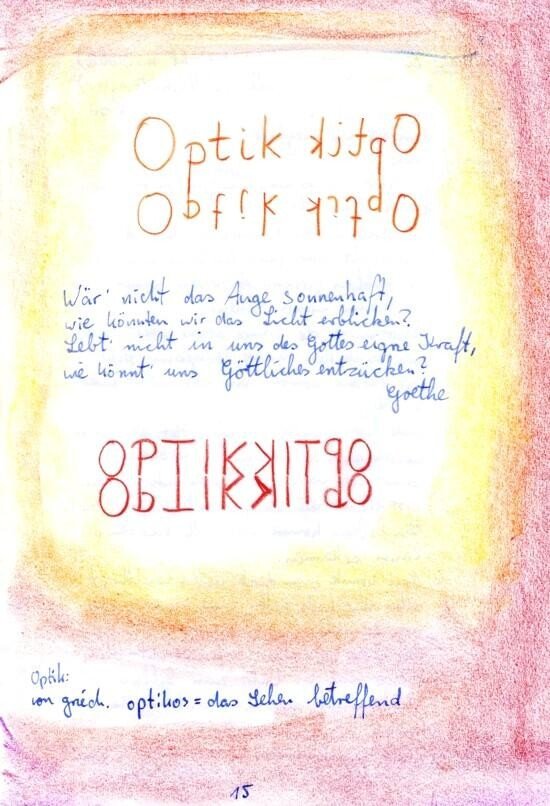 Optik kitqO
Optik kitqO
Wär' nicht das Auge sonnenhaft,
wie könnten wir das Licht erblicken?
Lebt' nicht in uns des Gottes eigne Kraft,
wie könnt' uns Göttliches entzücken?
Goethe
OPTIKKITqO
OPTIKKITqO
Optik:
von griech. optikos = das Sehen betreffend
15